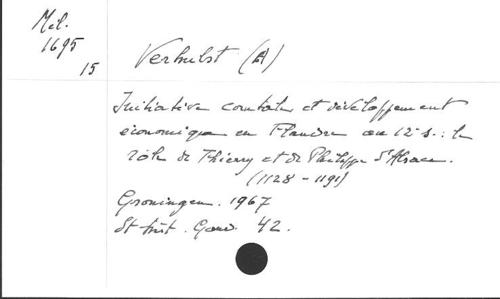 Mel.
1695
15
Verhulst (A)
Initiative comtale et développement
économique en Flandre au 12e s. : le
rôle de Thierry et de Philippe d'Alsace.
(1128 - 1191)
Groningen. 1967
St hist. Gand. 42.